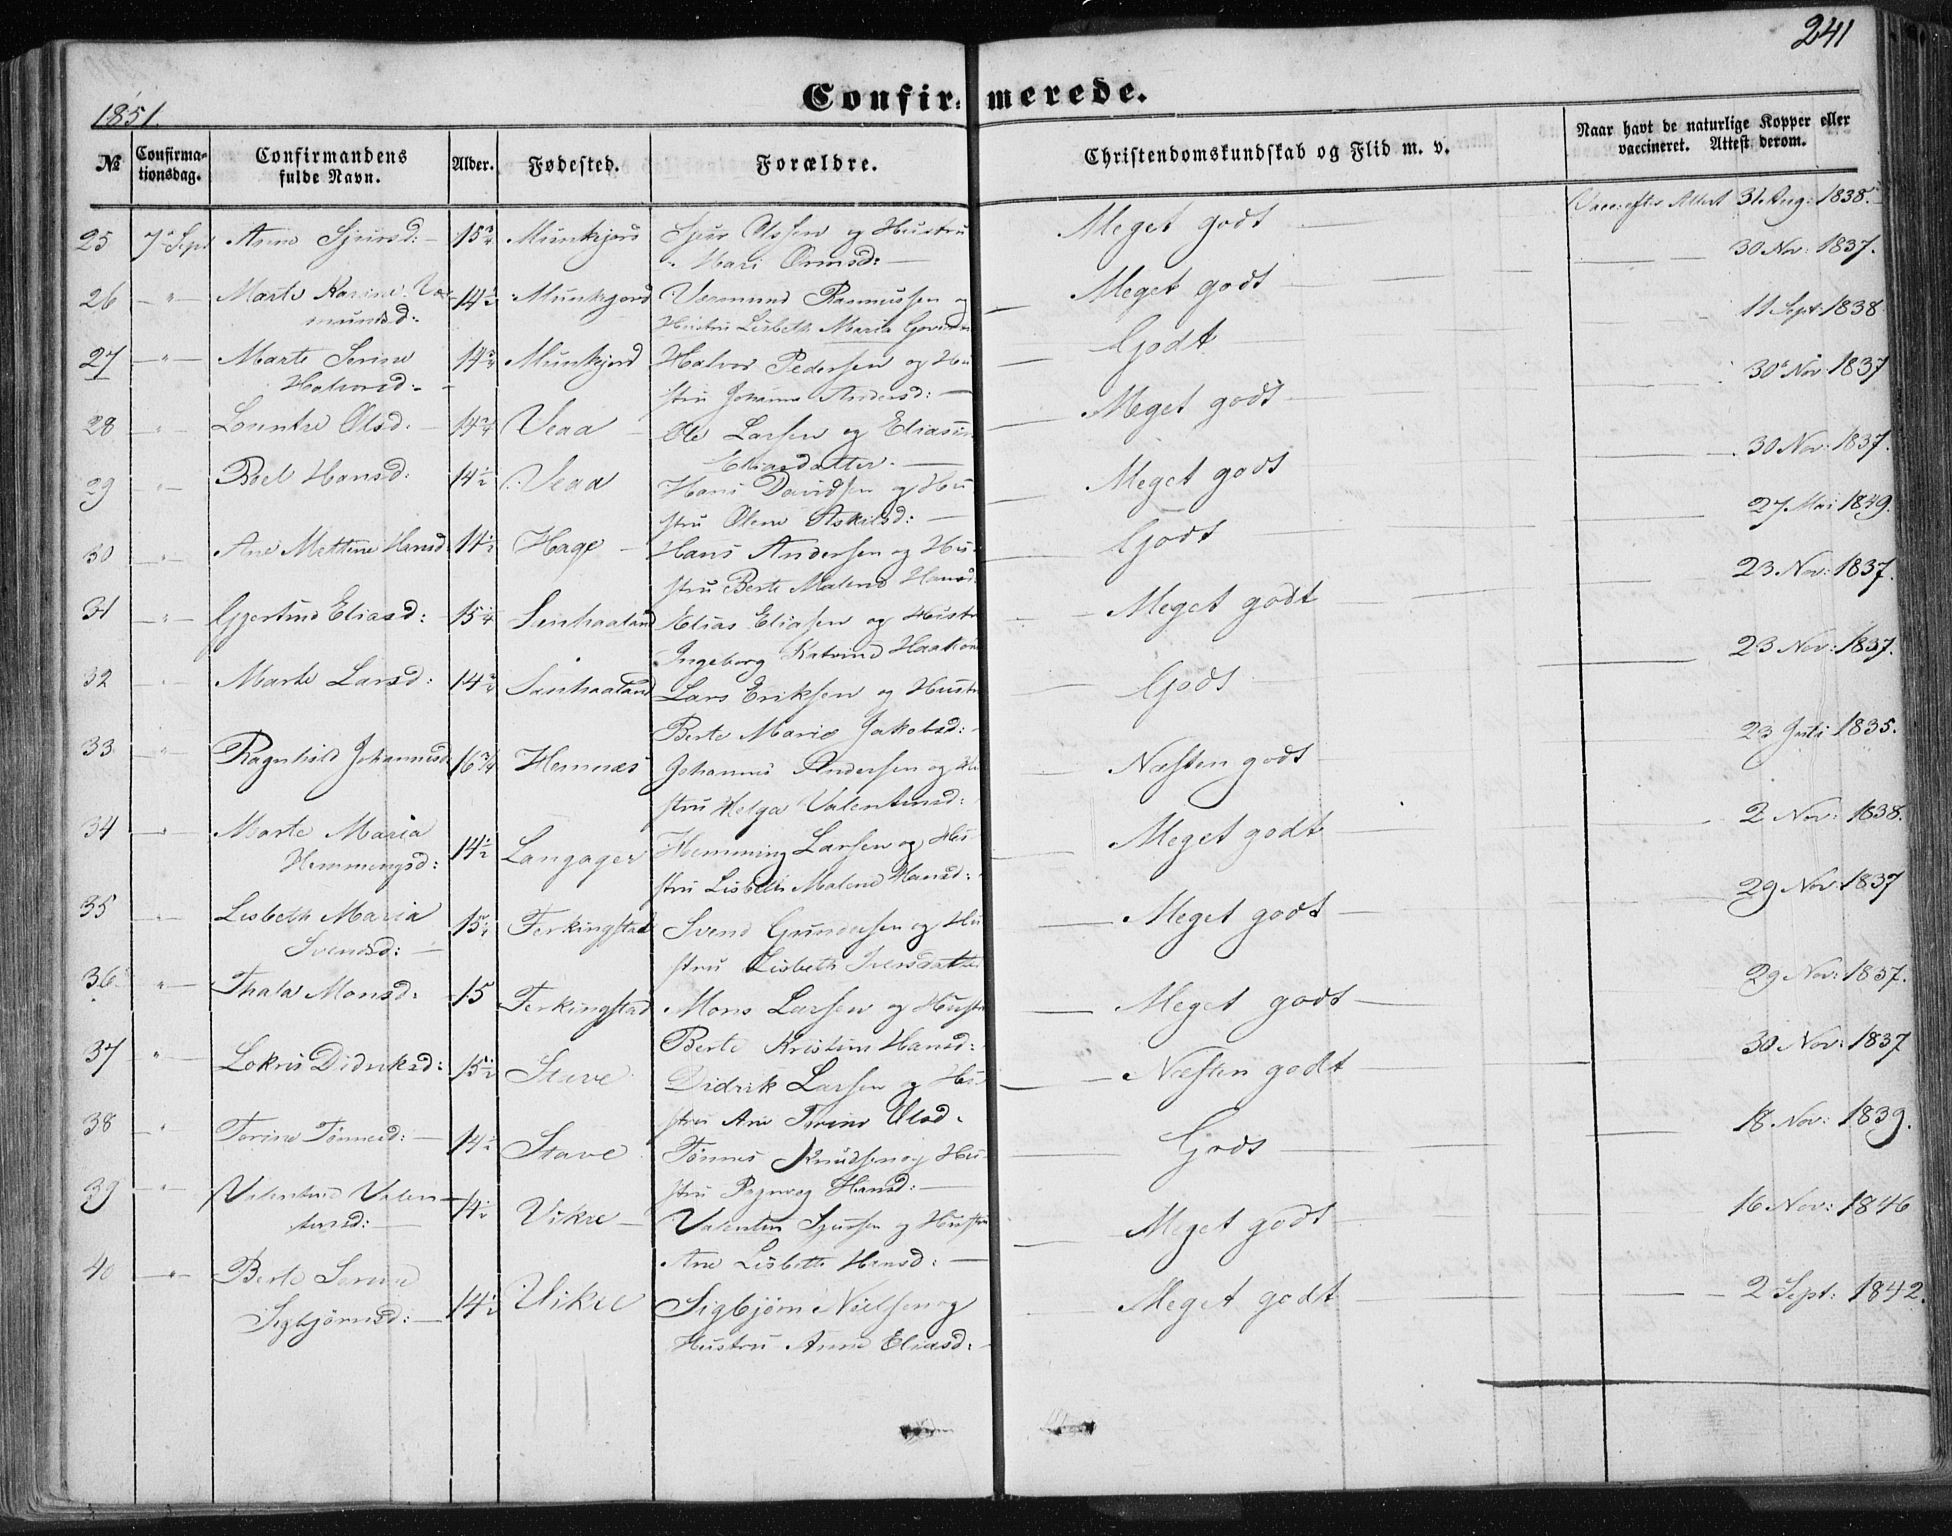 241
Confirmerede.
1851.
№ Confirmationsdag. Confirmandens fulde Navn. Alder. Fødested. Forældre. Christendomskundskab og Flid m. v. Naar havt de naturlige Kopper eller vaccineret. Attest derom.
25 7de Sept Anne Sjursd: 15¾ Munkejord Sjur Olsen og Hustru Meget godt Vacc. efter Attest 31 Aug: 1838.
Mari Ormsd:
26 " Marte Karine Ver- 14½ Munkejord Vermund Rasmussen og Meget godt 30 Nov: 1837.
mundsd: Hustru Lisbeth Maria
27 " Marte Serine 14¾ Munkejord Halvor Pedersen og Hu Godt 11 Sept: 1838
Halvorsd: stru Johanna Andersd:
28 " Olsd: 14¾ Veaa Ole Larsen og Meget godt 30 Nov: 1837
Eliasdatter.
29 " Boel Hansd: 14½ Veaa Hans Davidsen og Hu Meget godt 30 Nov: 1837.
stru Olene Askilsd:
30 " Ane Mettine Hansd. 14½ Hage Hans Andersen og Hu Godt 27 Mai 1849.
stru Berte Malene Hansd.
31 " Gjertrud Eliasd: 15¼ Sunhaaland Elias Eliasen og Hustru Meget godt 23 Nov: 1837.
Ingeborg Katrine Haakons
32 " Marte Larsd: 14¾ Sunhaaland Lars Eriksen og Hustru Godt 23 Nov: 1837.
Berte Marie Jakobsd:
33 " Ragnhild Johannesd. 16¾ Hemnes Johannes Andersen og Hu Næsten godt 23 Juli 1835.
stru Helga Valentinsd:
34 " Marte Maria 14½ Langager Hemming Larsen og Hu- Meget godt 2 Nov: 1838.
Hemmingsd: stru Lisbeth Malene Hansd:
35 " Lisbeth Maria 15¼ Ferkingstad Svend Gundersen og Hu Meget godt 29 Nov: 1837
Svendsd: stru Lisbeth Iversdatter
36 " Thala Monsd: 15 Ferkingstad Mons Larsen og Hustru Meget godt 29 Nov: 1837.
Berte Kristine Hansd:
37 " Lokris Didriksd: 15½ Stave Didrik Larsen og Hu Næsten godt 30 Nov: 1837
stru Ane Olsd.
38 " Torine Tønnesd: 14½ Stave Tønnes Knudsen og Hu- Godt 18 Nov: 1839.
stru Hansd:
39 " Valentine Valen- 14½ Vikre Valentin Sjursen og Hustru Meget godt 16 Nov: 1846
tinsd: Ane Lisbeth Hansd:
40 " Berte Serine 14½ Vikre Sigbjørn Nielsen og Meget godt 2 Sept: 1842.
Sigbjørnsd: Hustru Anne Eliasd: